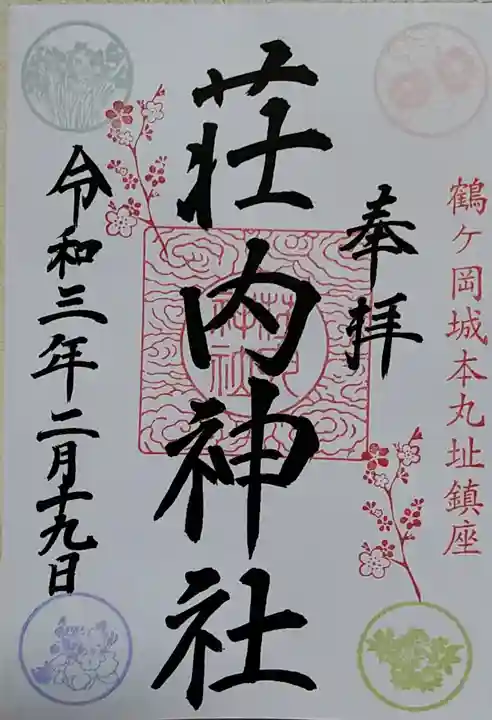 鶴ヶ岡城本丸址鎮座
奉拝
荘内神社
荘内
神社
令和三年二月十九日